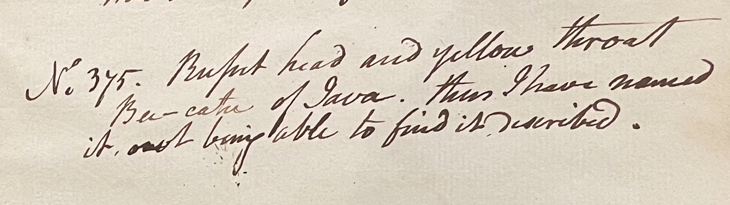 No. 375. Rufust head and yellow throat
Bee-catr of Java. thus I have named
it, not being able to find it described.